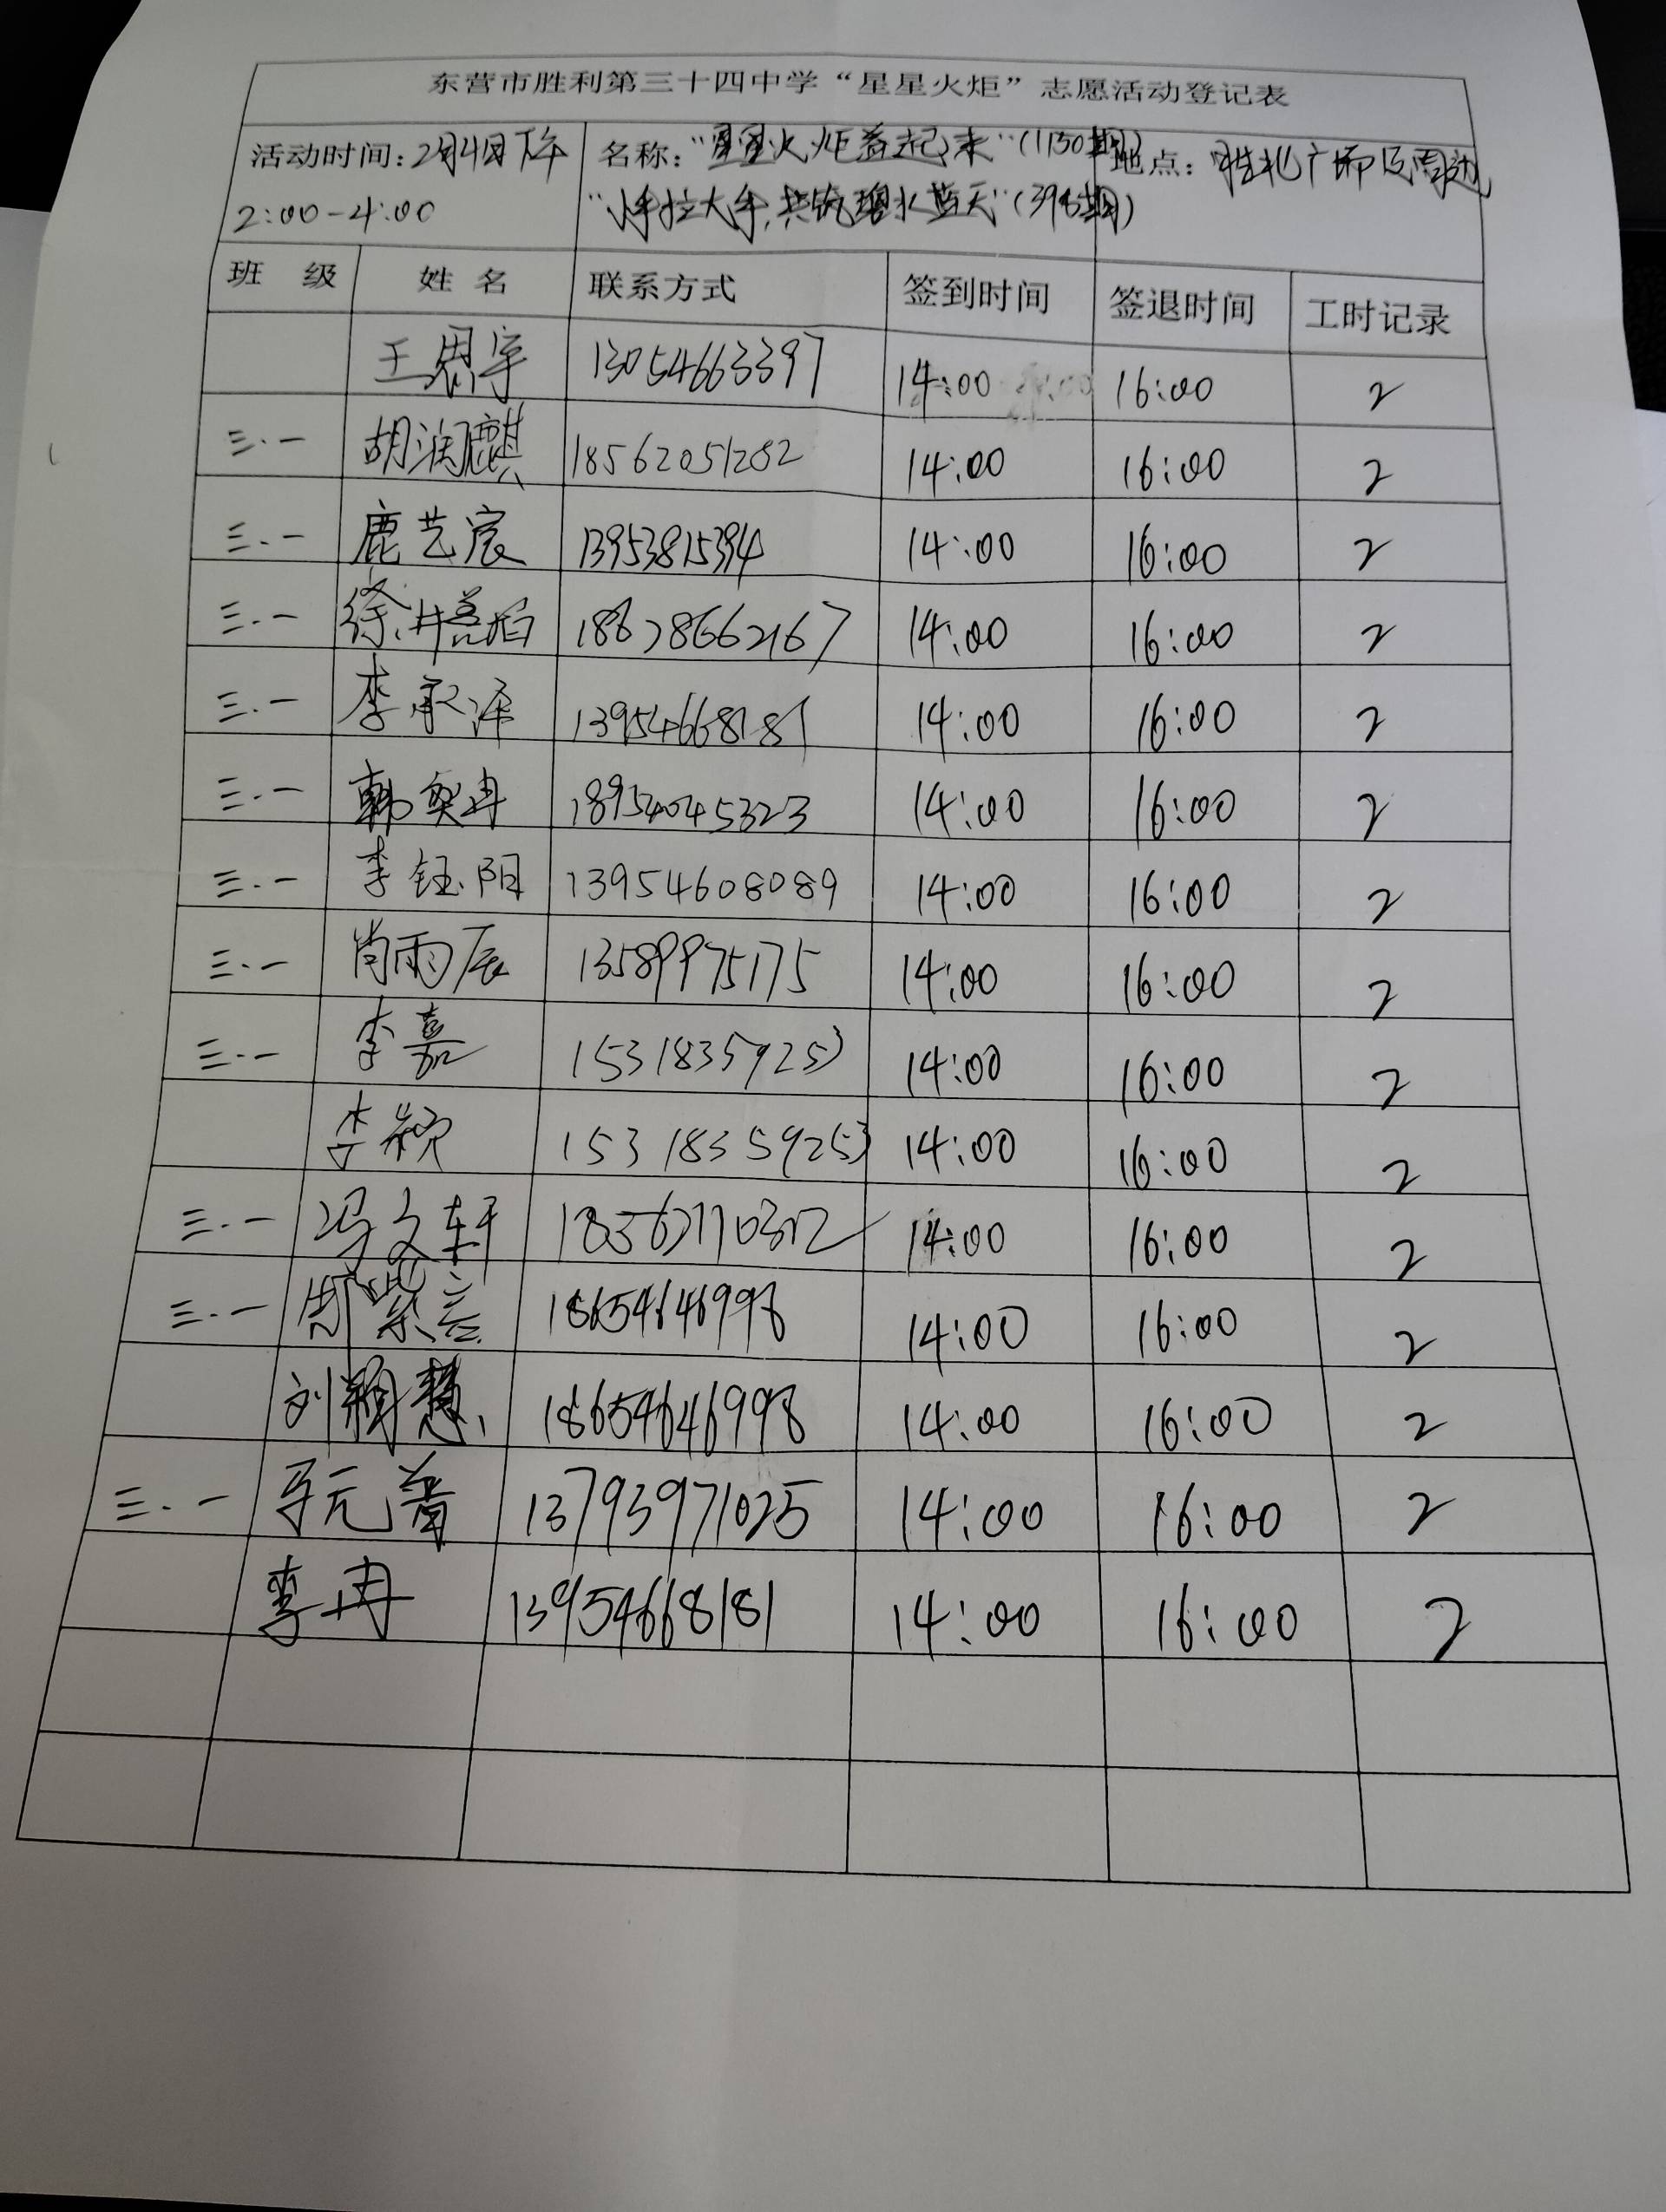 东营市胜利第三十四中学“星星火炬”志愿活动登记表
活动时间：2月4日下午 名称：“星星火炬普起来”(1130期) 地点：胜北广场及周边
2:00-4:00 “小手拉大手,共筑碧水蓝天”(398期)
班 级 姓 名 联系方式 签到时间 签退时间 工时记录
王思宇 13054663397 14:00 16:00 2
三.一 胡润麒 18562051282 14:00 16:00 2
三.一 鹿艺宸 13953815394 14:00 16:00 2
三.一 徐 14:00 16:00 2
三.一 李承泽 13954668181 14:00 16:00 2
三.一 韩奕冉 18954045323 14:00 16:00 2
三.一 李钰阳 13954608089 14:00 16:00 2
三.一 肖雨辰 13589975175 14:00 16:00 2
三.一 李嘉 15318359253 14:00 16:00 2
李颖 15318359253 14:00 16:00 2
三.一 冯文轩 14:00 16:00 2
三.一 紫言 18654646998 14:00 16:00 2
刘颖慧 18654646998 14:00 16:00 2
三.一 元普 13793971025 14:00 16:00 2
李冉 13954668181 14:00 16:00 2